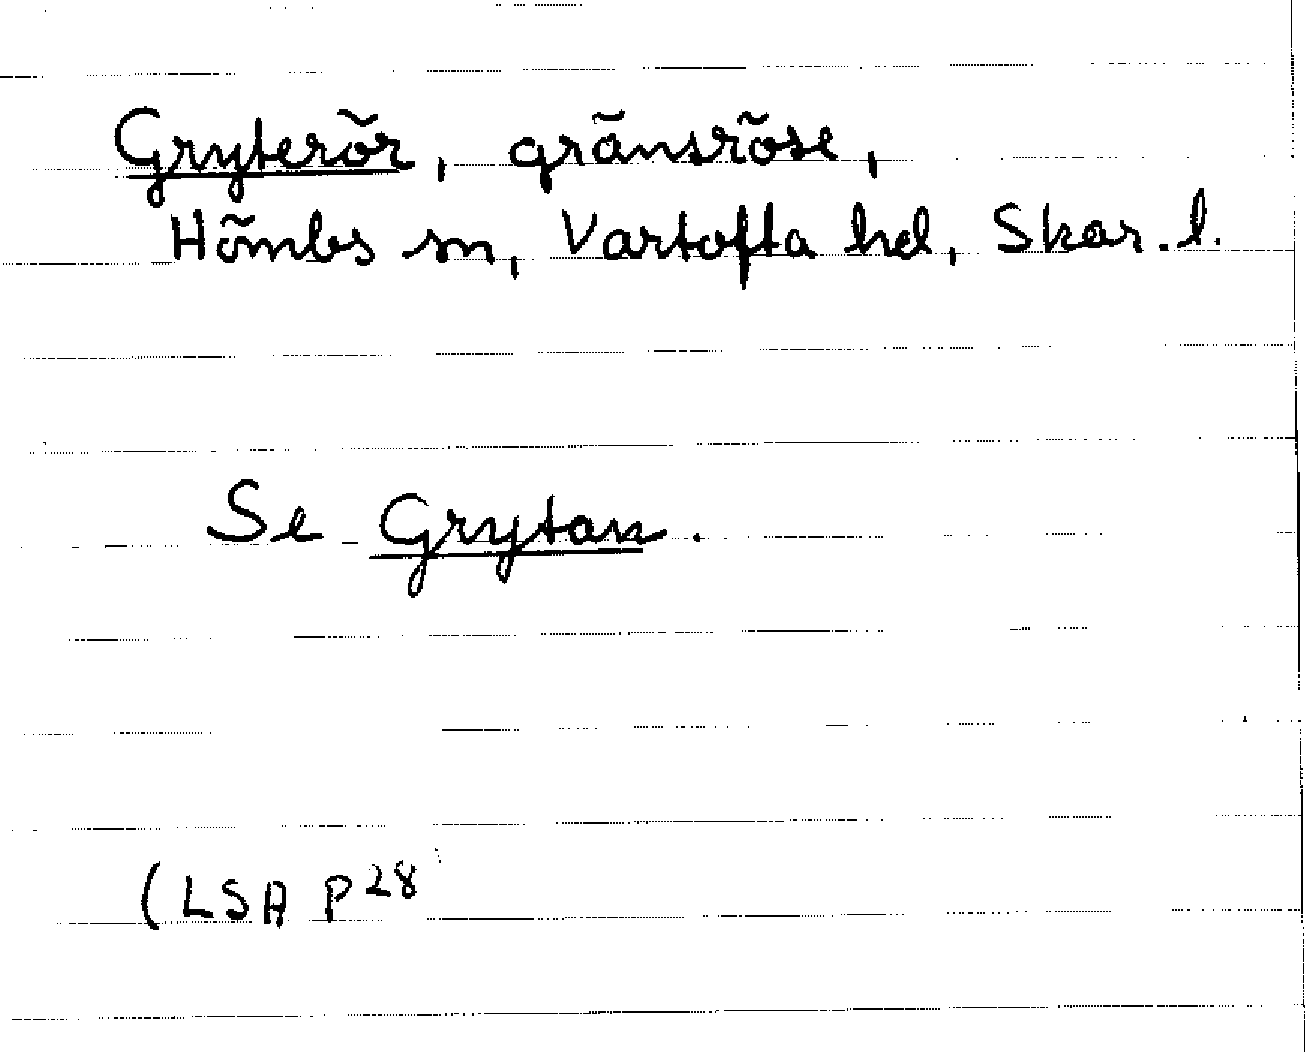 Gryterör, gränsröse,
Hömbs sn, Vartofta hd, Skar. l.
Se Grytan.
(LSA P28